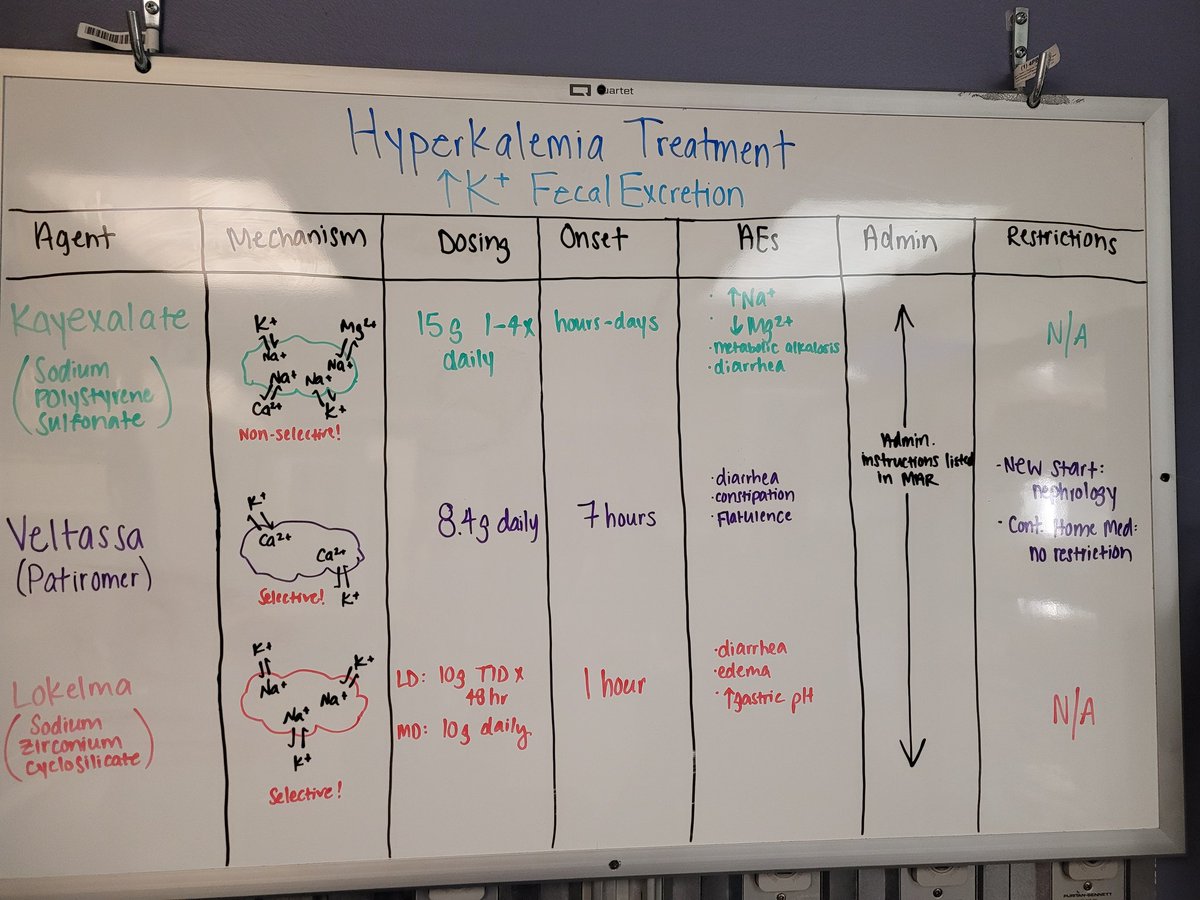 Quartet
Hyperkalemia Treatment
↑K+ Fecal Excretion
Agent
Mechanism
Dosing
Onset
AEs
Admin
Restrictions
Kayexalate
(Sodium
Polystyrene
Sulfonate)
K+
Mg2+
Na+
Na+
Na+
Na+
Ca2+
K+
Non-selective!
15g 1-4x
daily
hours-days
· ↑Na+
· ↓Mg2+
·metabolic alkalosis
·diarrhea
N/A
Admin.
instructions listed
in MAR
Veltassa
(Patiromer)
K+
Ca2+
Ca2+
K+
Selective!
8.4g daily
7 hours
·diarrhea
·constipation
·flatulence
·New Start:
nephrology
· Cont. Home Med:
no restriction
Lokelma
(Sodium
Zirconium
Cyclosilicate)
K+
K+
Na+
Na+
Na+
K+
Selective!
LD: 10g TID x
48hr
MD: 10g daily.
1 hour
·diarrhea
·edema
·↑gastric pH
N/A
PURITAN-BENNETT